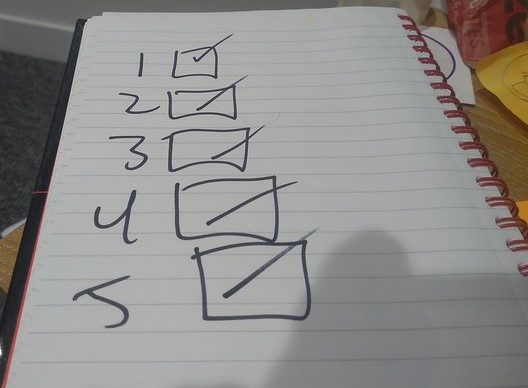 1 ☑
2 ☑
3 ☑
4 ☑
5 ☑